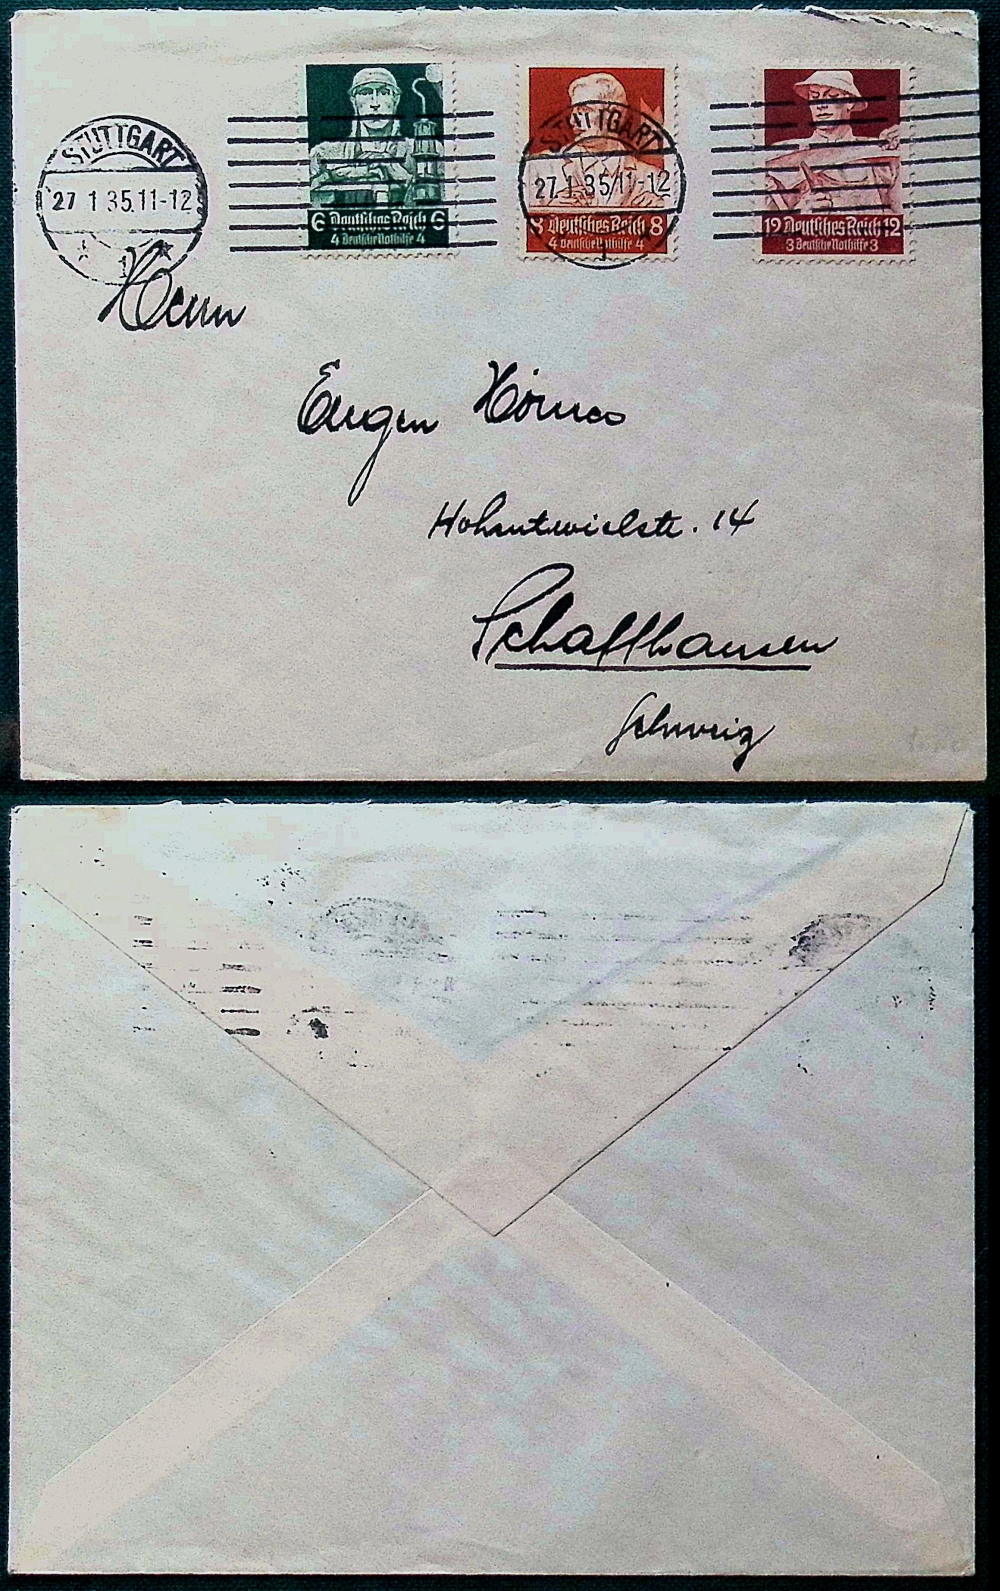 STUTTGART
27.1.35.11-12
1
6 Deutsches Reich 6
4 Deutsche Nothilfe 4
STUTTGART
27.1.35.11-12
1
8 Deutsches Reich 8
4 Deutsche Nothilfe 4
12 Deutsches Reich 12
3 Deutsche Nothilfe 3
Herrn
Eugen
Hohentwielstr. 14
Schaffhausen
Schweiz